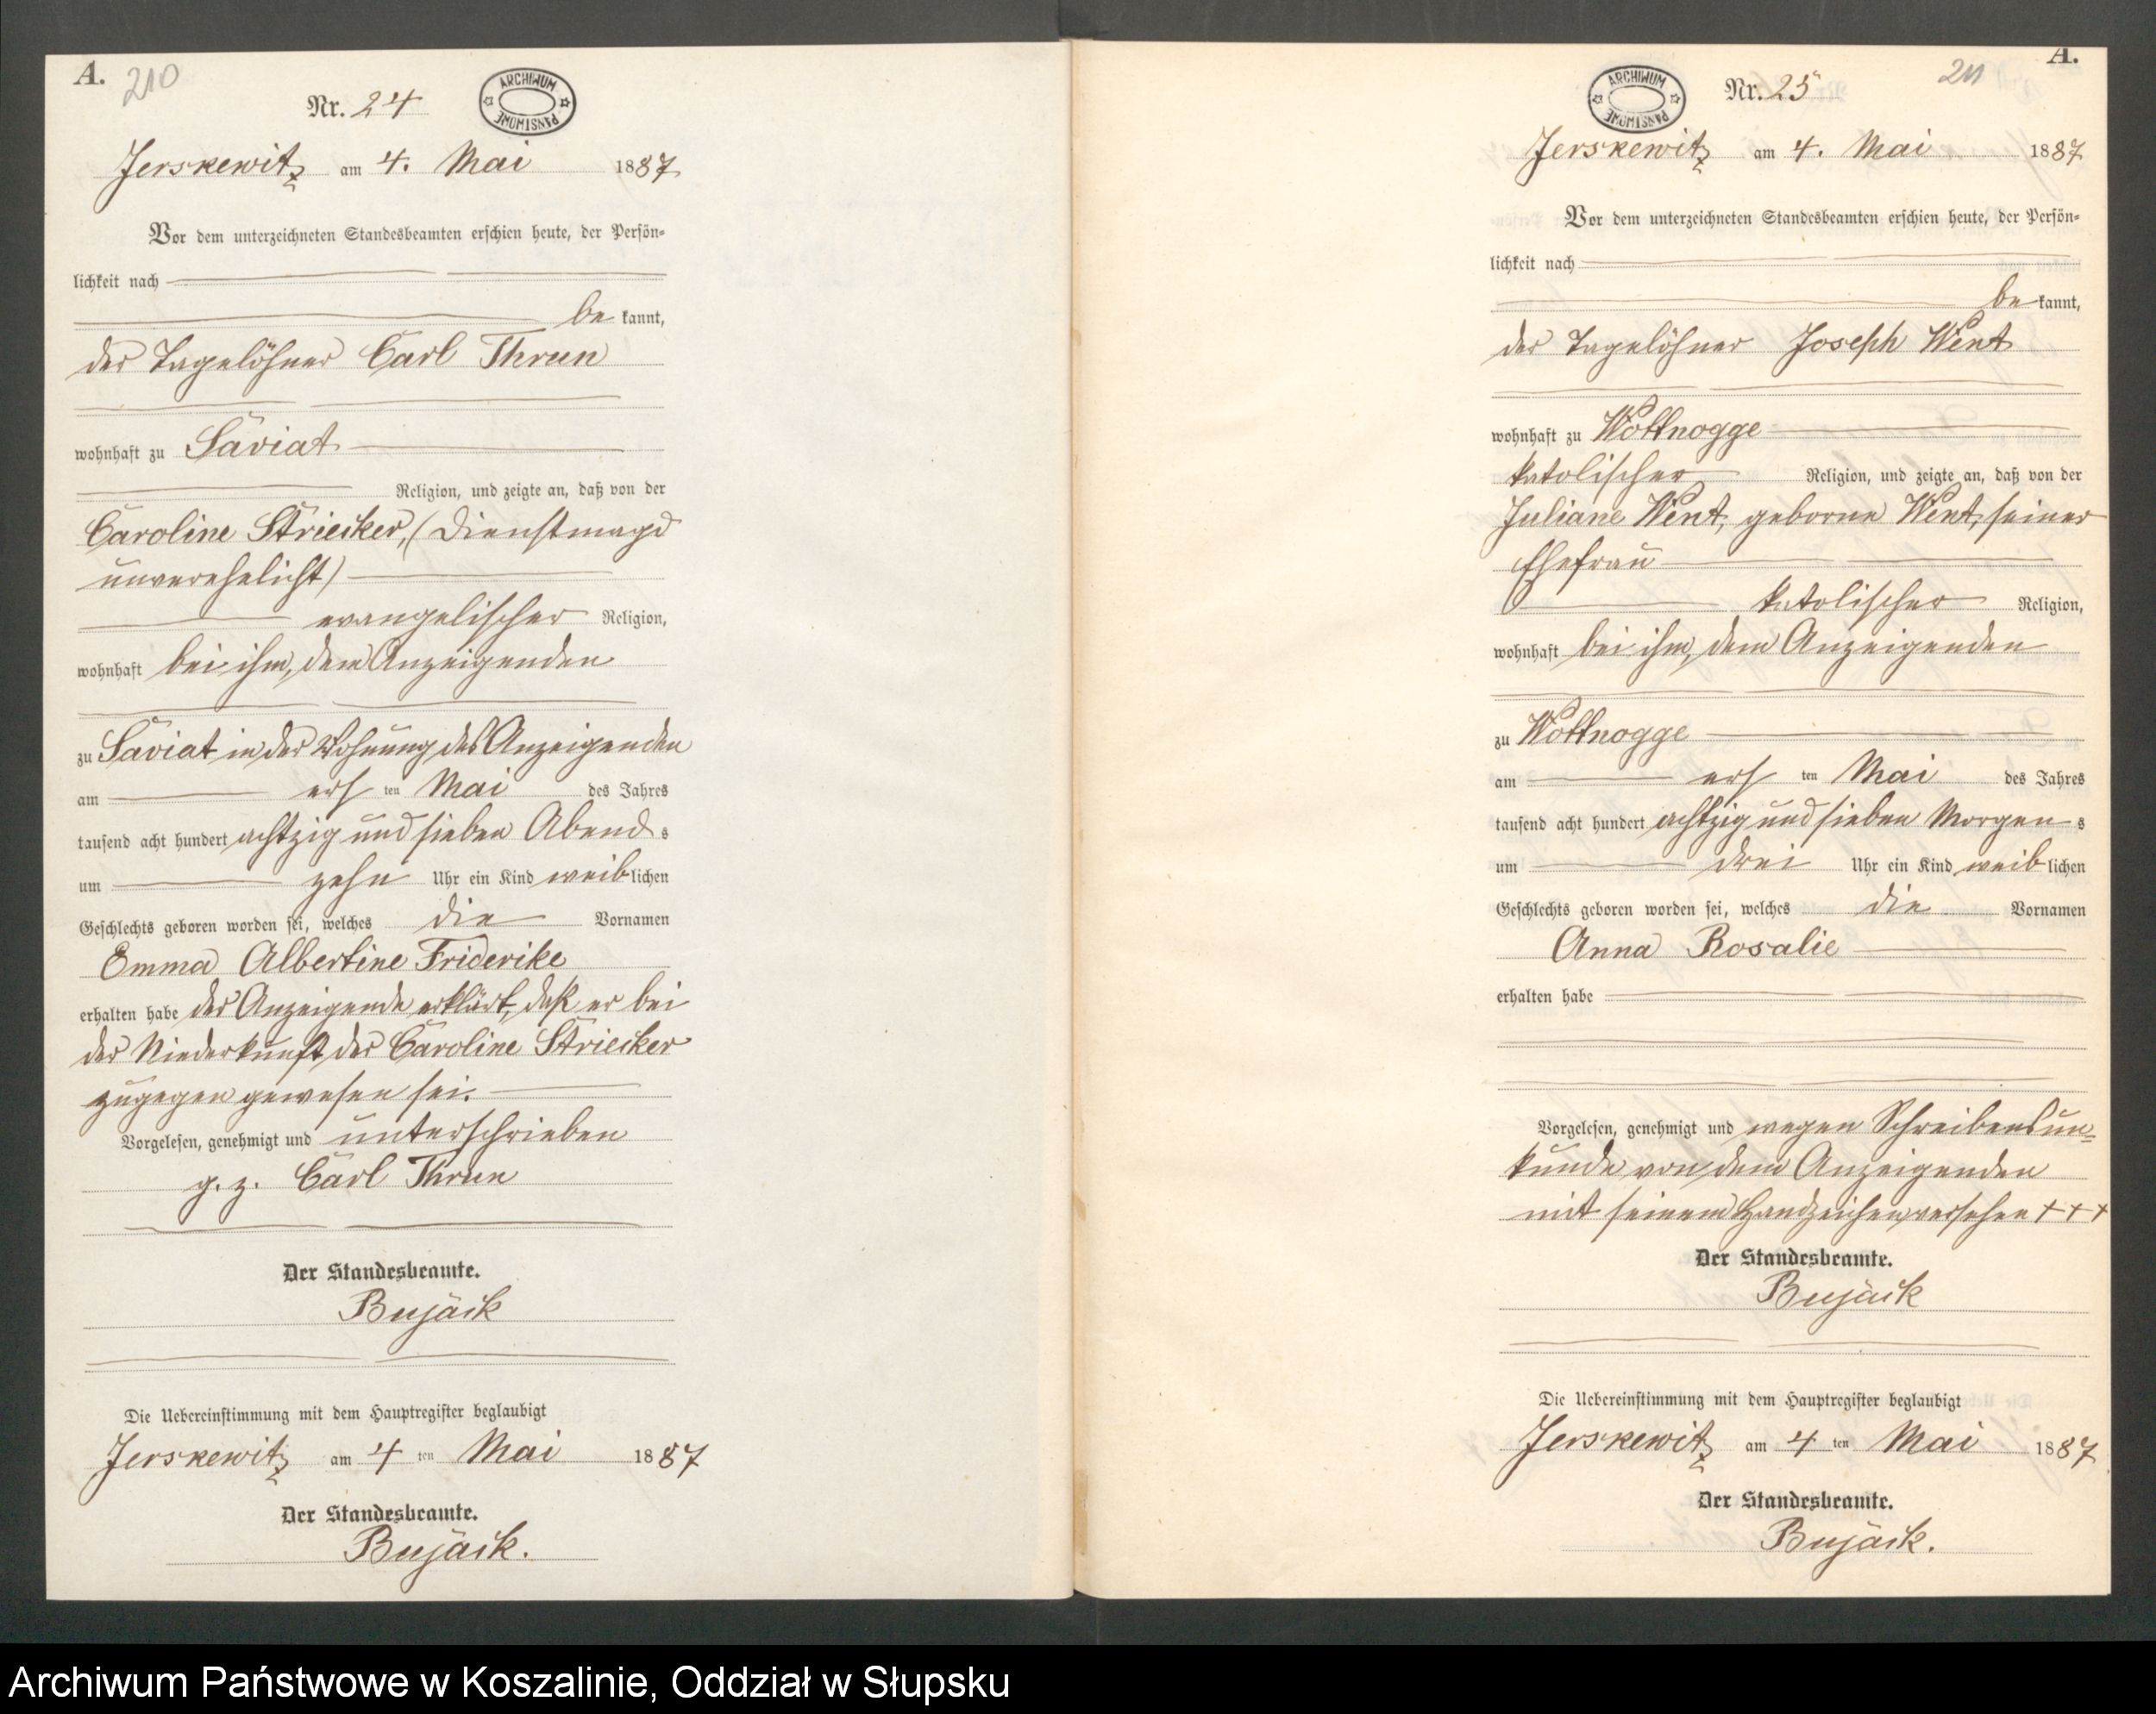 A.
210
Nr. 24
ARCHIWUM
PAŃSTWOWE
Jerskewitz am 4. Mai 1887
Vor dem unterzeichneten Standesbeamten erschien heute, der Persön-
lichkeit nach
be kannt,
der Tagelöhner Carl Thrun
wohnhaft zu Saviat
Religion, und zeigte an, daß von der
Caroline Striecker, (Dienstmagd
unverehelicht)
evangelischer Religion,
wohnhaft bei ihm, dem Anzeigenden
zu Saviat in der Wohnung des Anzeigenden
am erst ten Mai des Jahres
tausend acht hundert achtzig und sieben Abend s
um zehn Uhr ein Kind weib lichen
Geschlechts geboren worden sei, welches die Vornamen
Emma Albertine Friderike
erhalten habe der Anzeigende erklärt, daß er bei
der Niederkunft der Caroline Striecker
zugegen gewesen sei.
Vorgelesen, genehmigt und unterschrieben
g. z. Carl Thrun
Der Standesbeamte.
Bujack
Die Uebereinstimmung mit dem Hauptregister beglaubigt
Jerskewitz am 4 ten Mai 1887
Der Standesbeamte.
Bujack.
A.
211
Nr. 25
ARCHIWUM
PAŃSTWOWE
Jerskewitz am 4. Mai 1887
Vor dem unterzeichneten Standesbeamten erschien heute, der Persön-
lichkeit nach
be kannt,
der Tagelöhner Joseph Went
wohnhaft zu Wottnogge
katolischer Religion, und zeigte an, daß von der
Juliane Went, geborne Went, seiner
Ehefrau
katolischer Religion,
wohnhaft bei ihm, dem Anzeigenden
zu Wottnogge
am erst ten Mai des Jahres
tausend acht hundert achtzig und sieben Morgen s
um drei Uhr ein Kind weib lichen
Geschlechts geboren worden sei, welches die Vornamen
Anna Rosalie
erhalten habe
Vorgelesen, genehmigt und wegen Schreibensun-
kunde von dem Anzeigenden
mit seinem Handzeichen versehen + + +
Der Standesbeamte.
Bujack
Die Uebereinstimmung mit dem Hauptregister beglaubigt
Jerskewitz am 4 ten Mai 1887
Der Standesbeamte.
Bujack.
Archiwum Państwowe w Koszalinie, Oddział w Słupsku